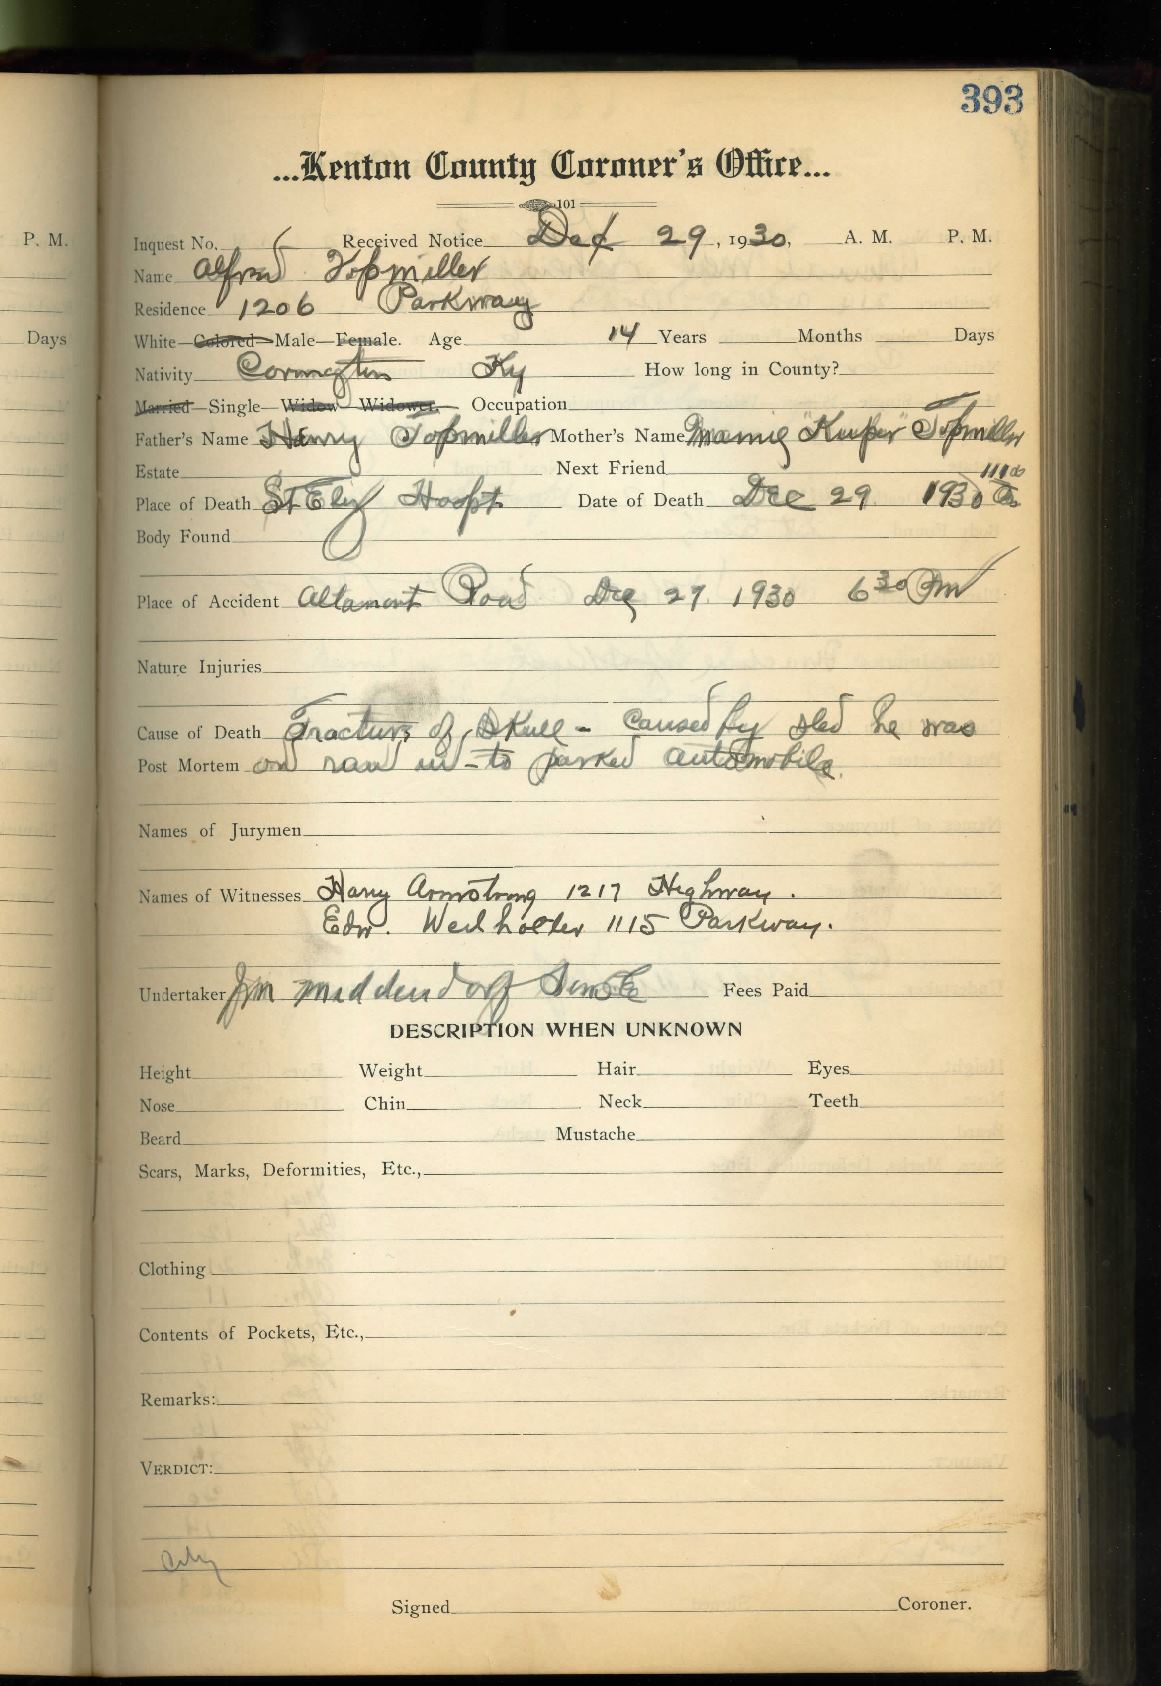 393
...Kenton County Coroner's Office...
101
P. M.
Inquest No. Received Notice Dec 29, 1930, A. M. P. M.
Name Alfred Topmiller
Residence 1206 Parkway
Days
White—Colored—Male—Female. Age 14 Years Months Days
Nativity Covington Ky How long in County?
Married—Single—Widow—Widower.— Occupation
Father's Name Henry Topmiller Mother's Name Mamie "Kuper" Topmiller
Estate Next Friend
Place of Death St Eliz Hospt Date of Death Dec 29 1930
Body Found
Place of Accident Altamont Road Dec 27 1930 6 30 Pm
Nature Injuries
Cause of Death Fracture of Skull - Caused by sled he was
Post Mortem on ran in-to parked automobile.
Names of Jurymen
Names of Witnesses Harry Armstrong 1217 Highway.
Edw. 1115 Parkway.
Undertaker Jm Middendorf Sons Co Fees Paid
DESCRIPTION WHEN UNKNOWN
Height Weight Hair Eyes
Nose Chin Neck Teeth
Beard Mustache
Scars, Marks, Deformities, Etc.,
Clothing
Contents of Pockets, Etc.,
Remarks:
VERDICT:
City
Signed Coroner.